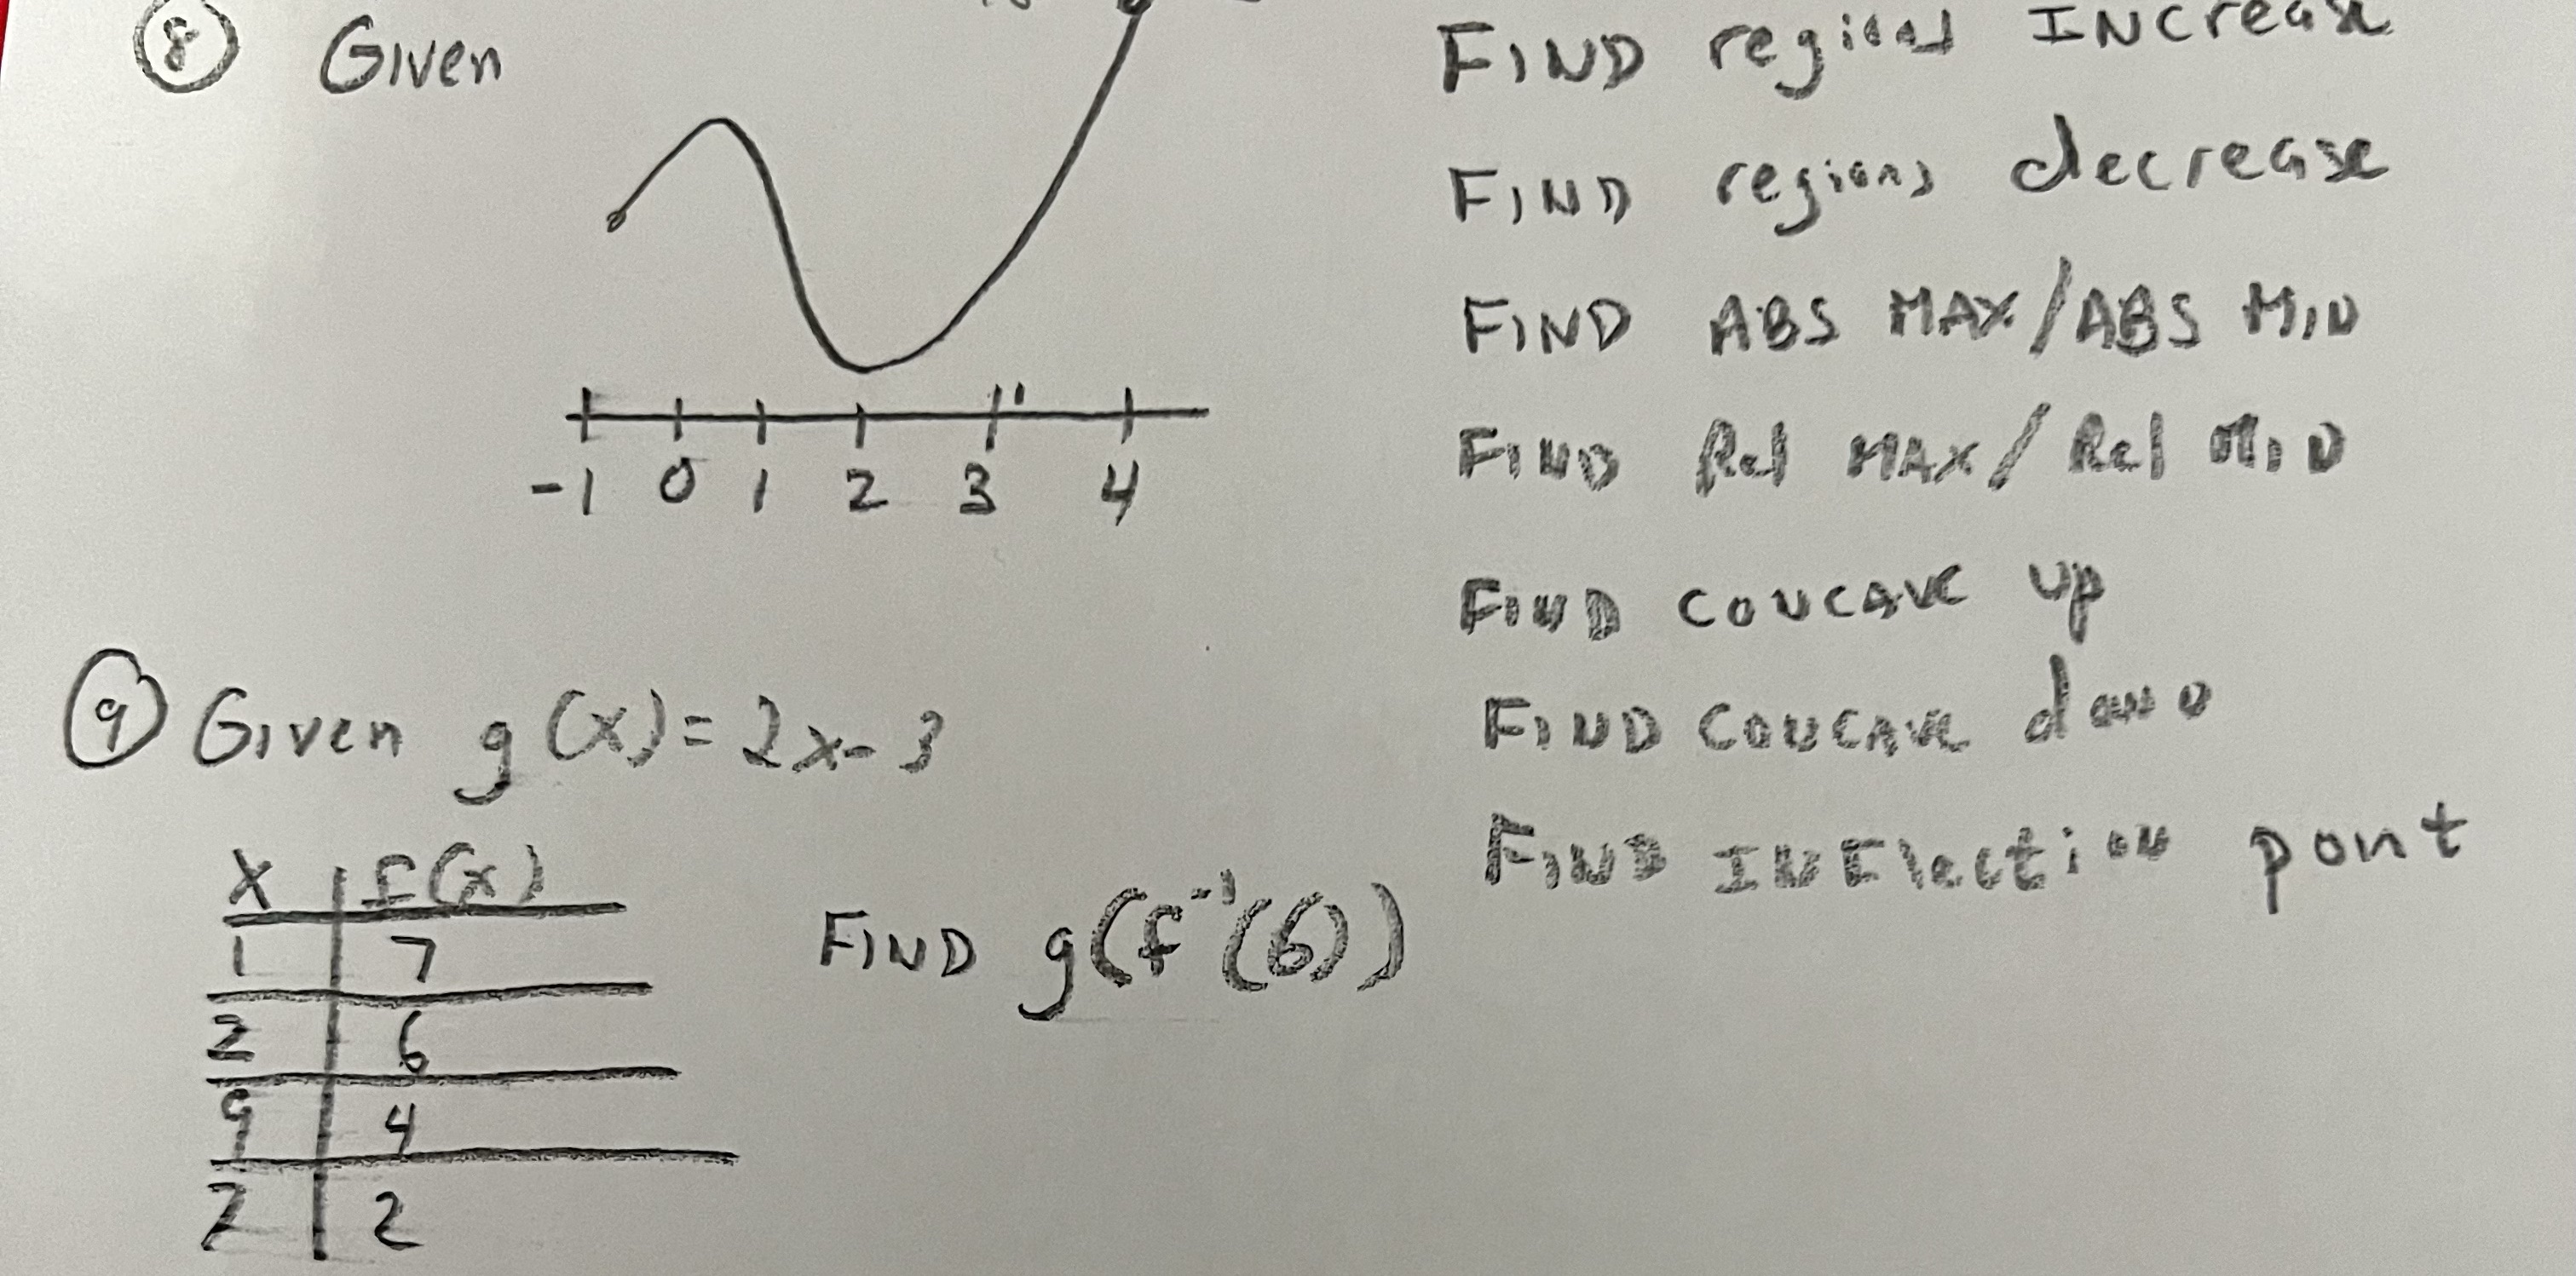 8 Given
FIND regions INcrease
FIND regions decrease
FIND ABS MAX/ABS MIN
FIND Rel MAX/Rel MIN
-1 0 1 2 3 4
FIND concave up
FIND concave down
FIND INFlection point
9 Given g(x)=2x-3
x f(x)
1 7
2 6
9 4
7 2
FIND g(f⁻¹(6))